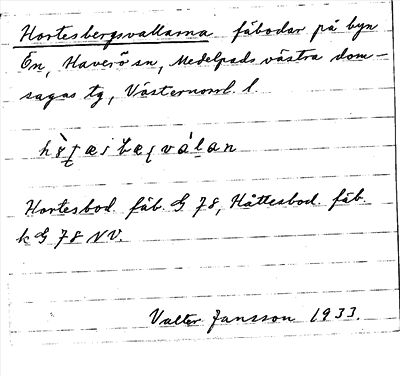 Hortesbergsvallarna fäbodar på byn
Ön, Haverö sn, Medelpads västra dom-
sagas tg, Västernorrl. l.
Hortesbod. fäb. G 78, Håttesbod. fäb.
k G 78 NV.
Valter Jansson 1933.